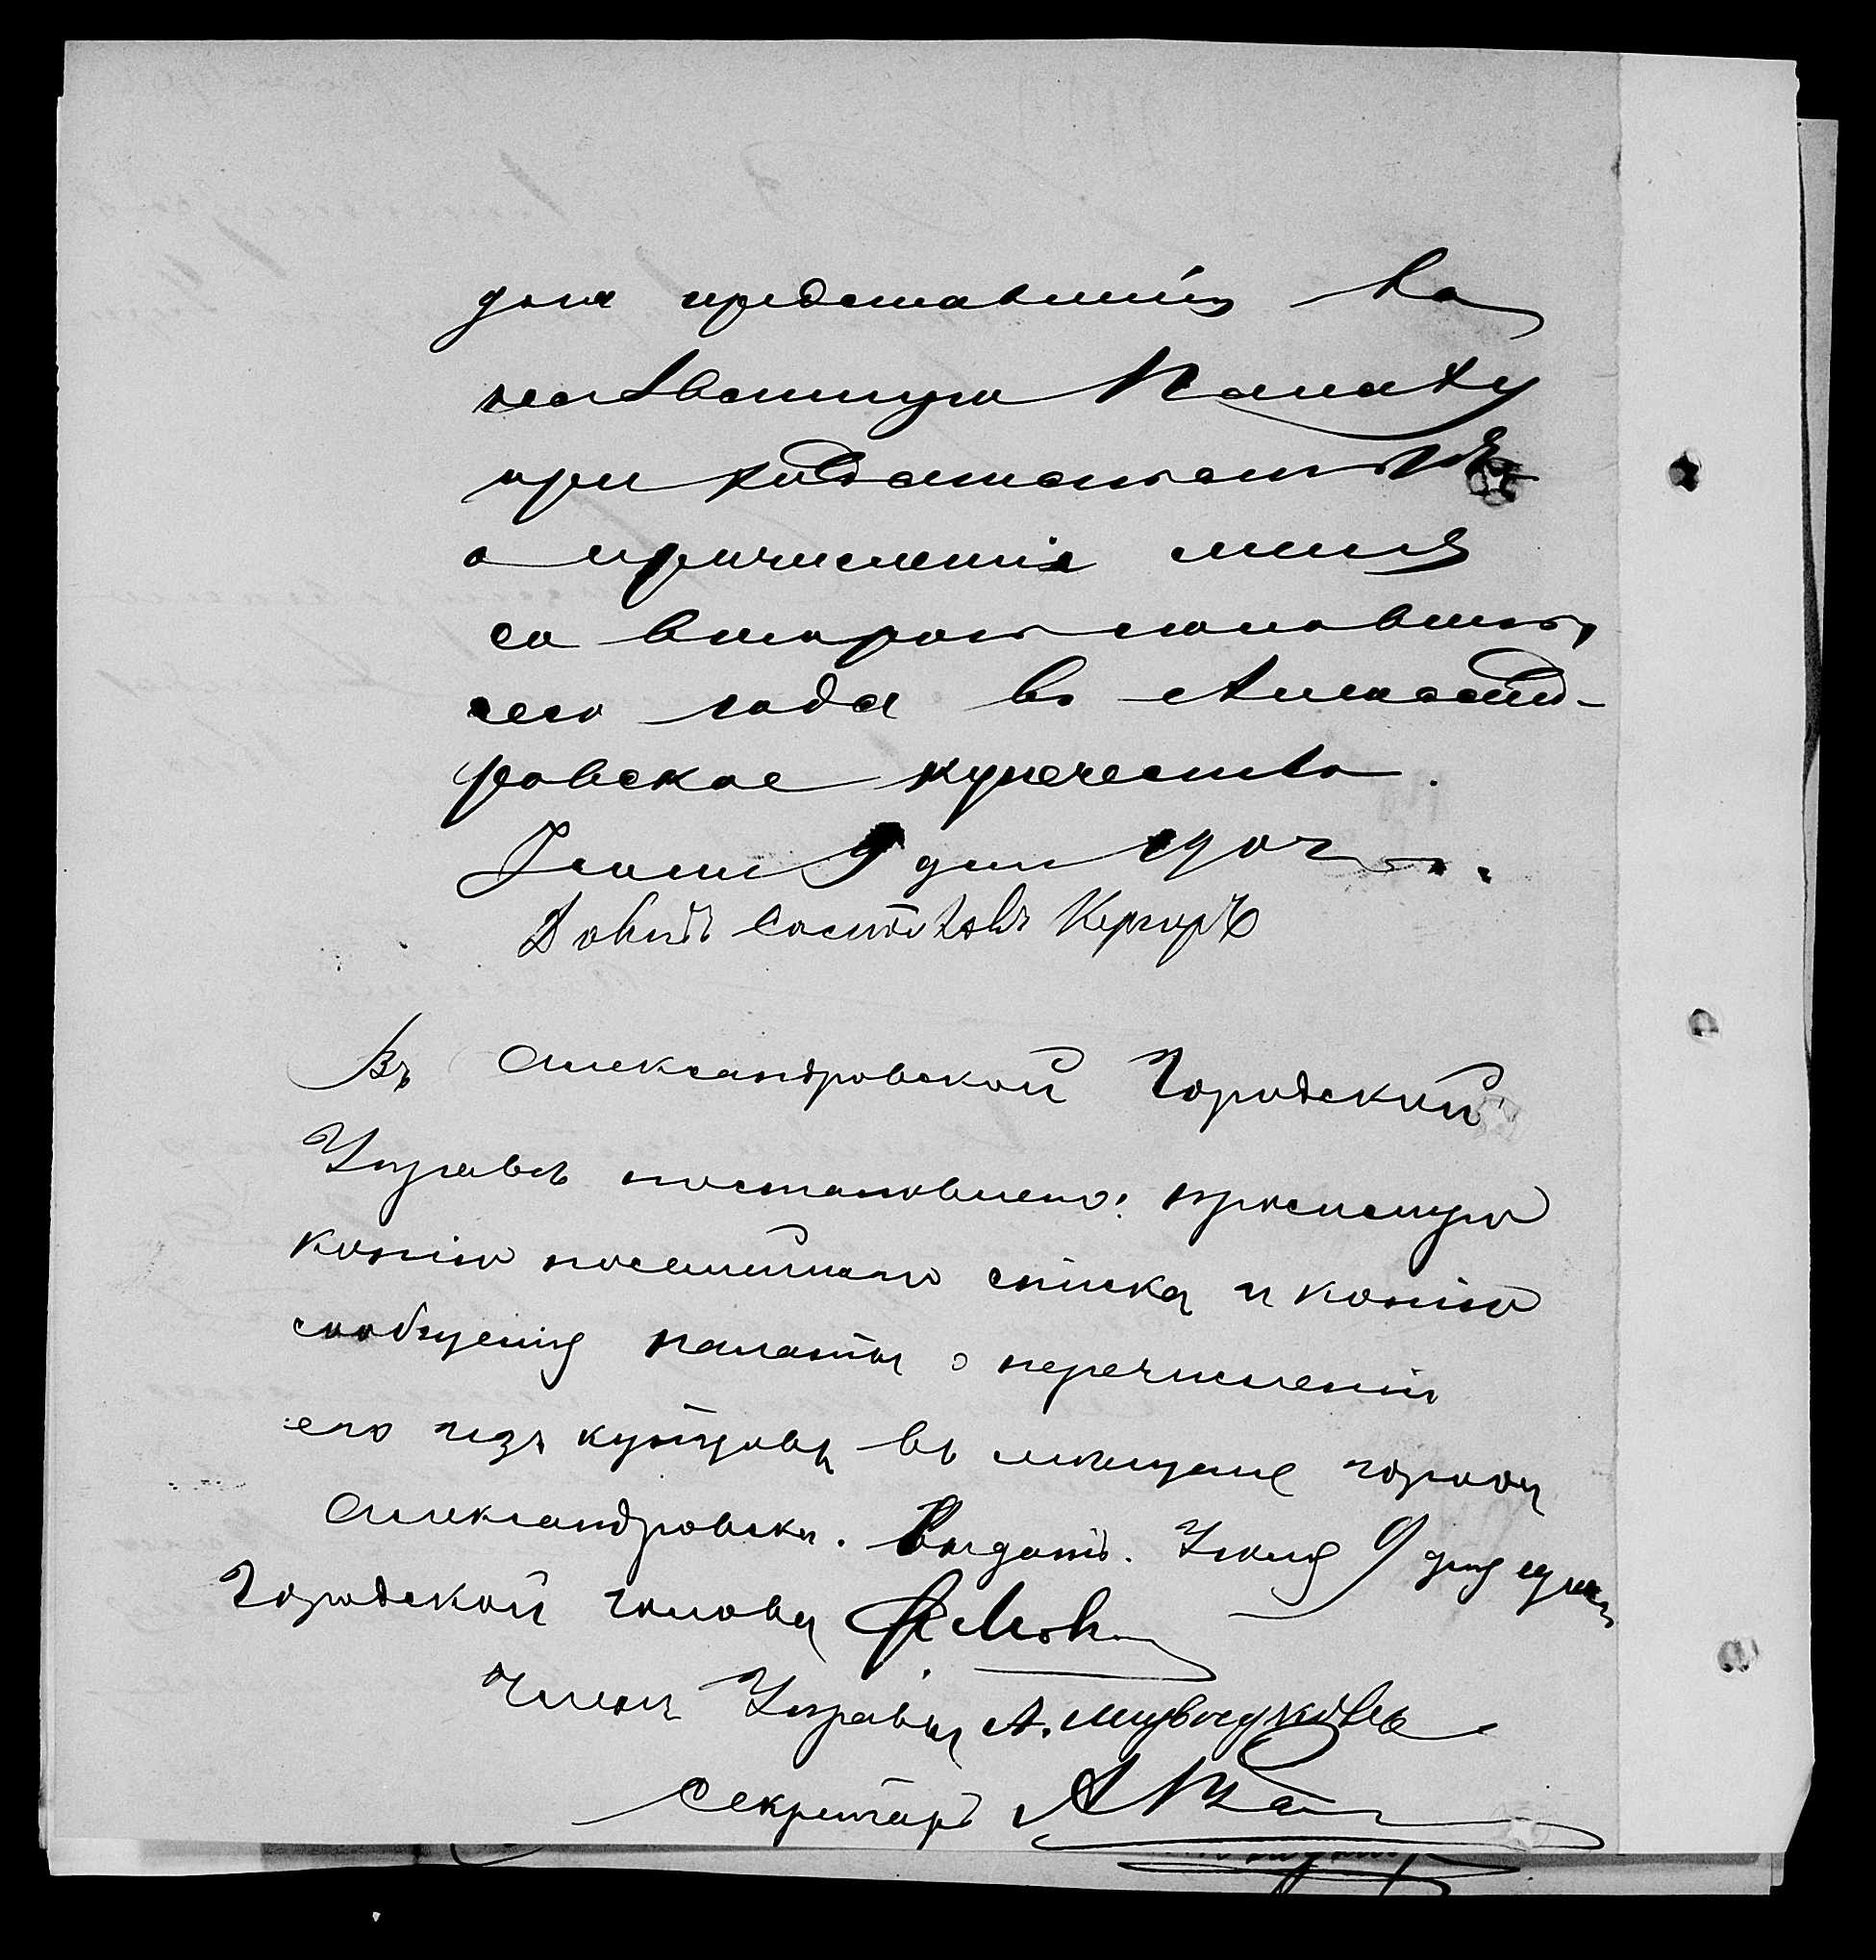 для представленія въ
названную Палату
при ходатайствѣ
о причисленіи меня
со второй половины
сего года въ Александ-
ровское купечество.
Іюля 9 дня 1904 г.
Давидъ
Въ Александровской Городской
Управѣ постановлено: просимую
копію посемейнаго списка и копію
сообщенія палаты о перечисленіи
его изъ купцовъ въ мѣщане города
Александровска. Выдать. Іюля 9 дня
Городской голова
Членъ Управы А.
Секретарь